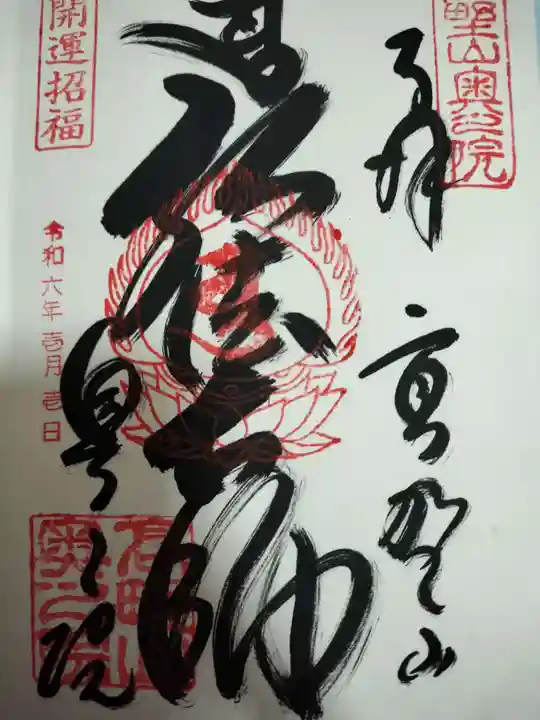 野山奥之院
奉拝 高野山
弘法大師
奥之院
開運招福
令和六年壱月壱日
高野山
奥之院